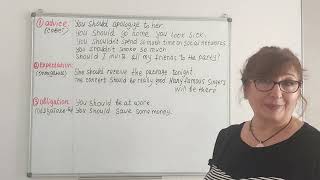 ① advice: You should apologize to her.
(совет) You should go home. You look sick.
You shouldn't spend so much time on social networks
You shouldn't smoke so much
Should I invite all my friends to the party?
② Expectation: She should receive the package tonight.
(ожидание) The concert should be really good. Many famous singers
will be there
③ obligation: You should be at work.
You should save some money.